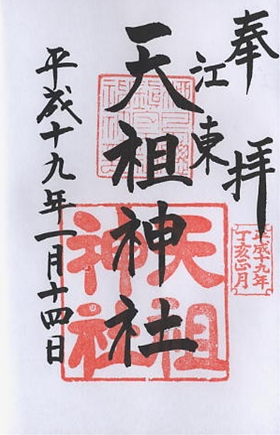 奉拝
江東
天祖神社
平成十九年一月十四日
天祖
神社
平成十九年
丁亥正月